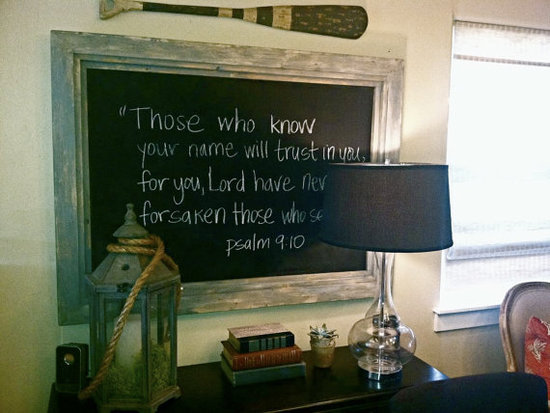 "Those who know
your name will trust in you,
for you, Lord have
forsaken those who
psalm 9:10